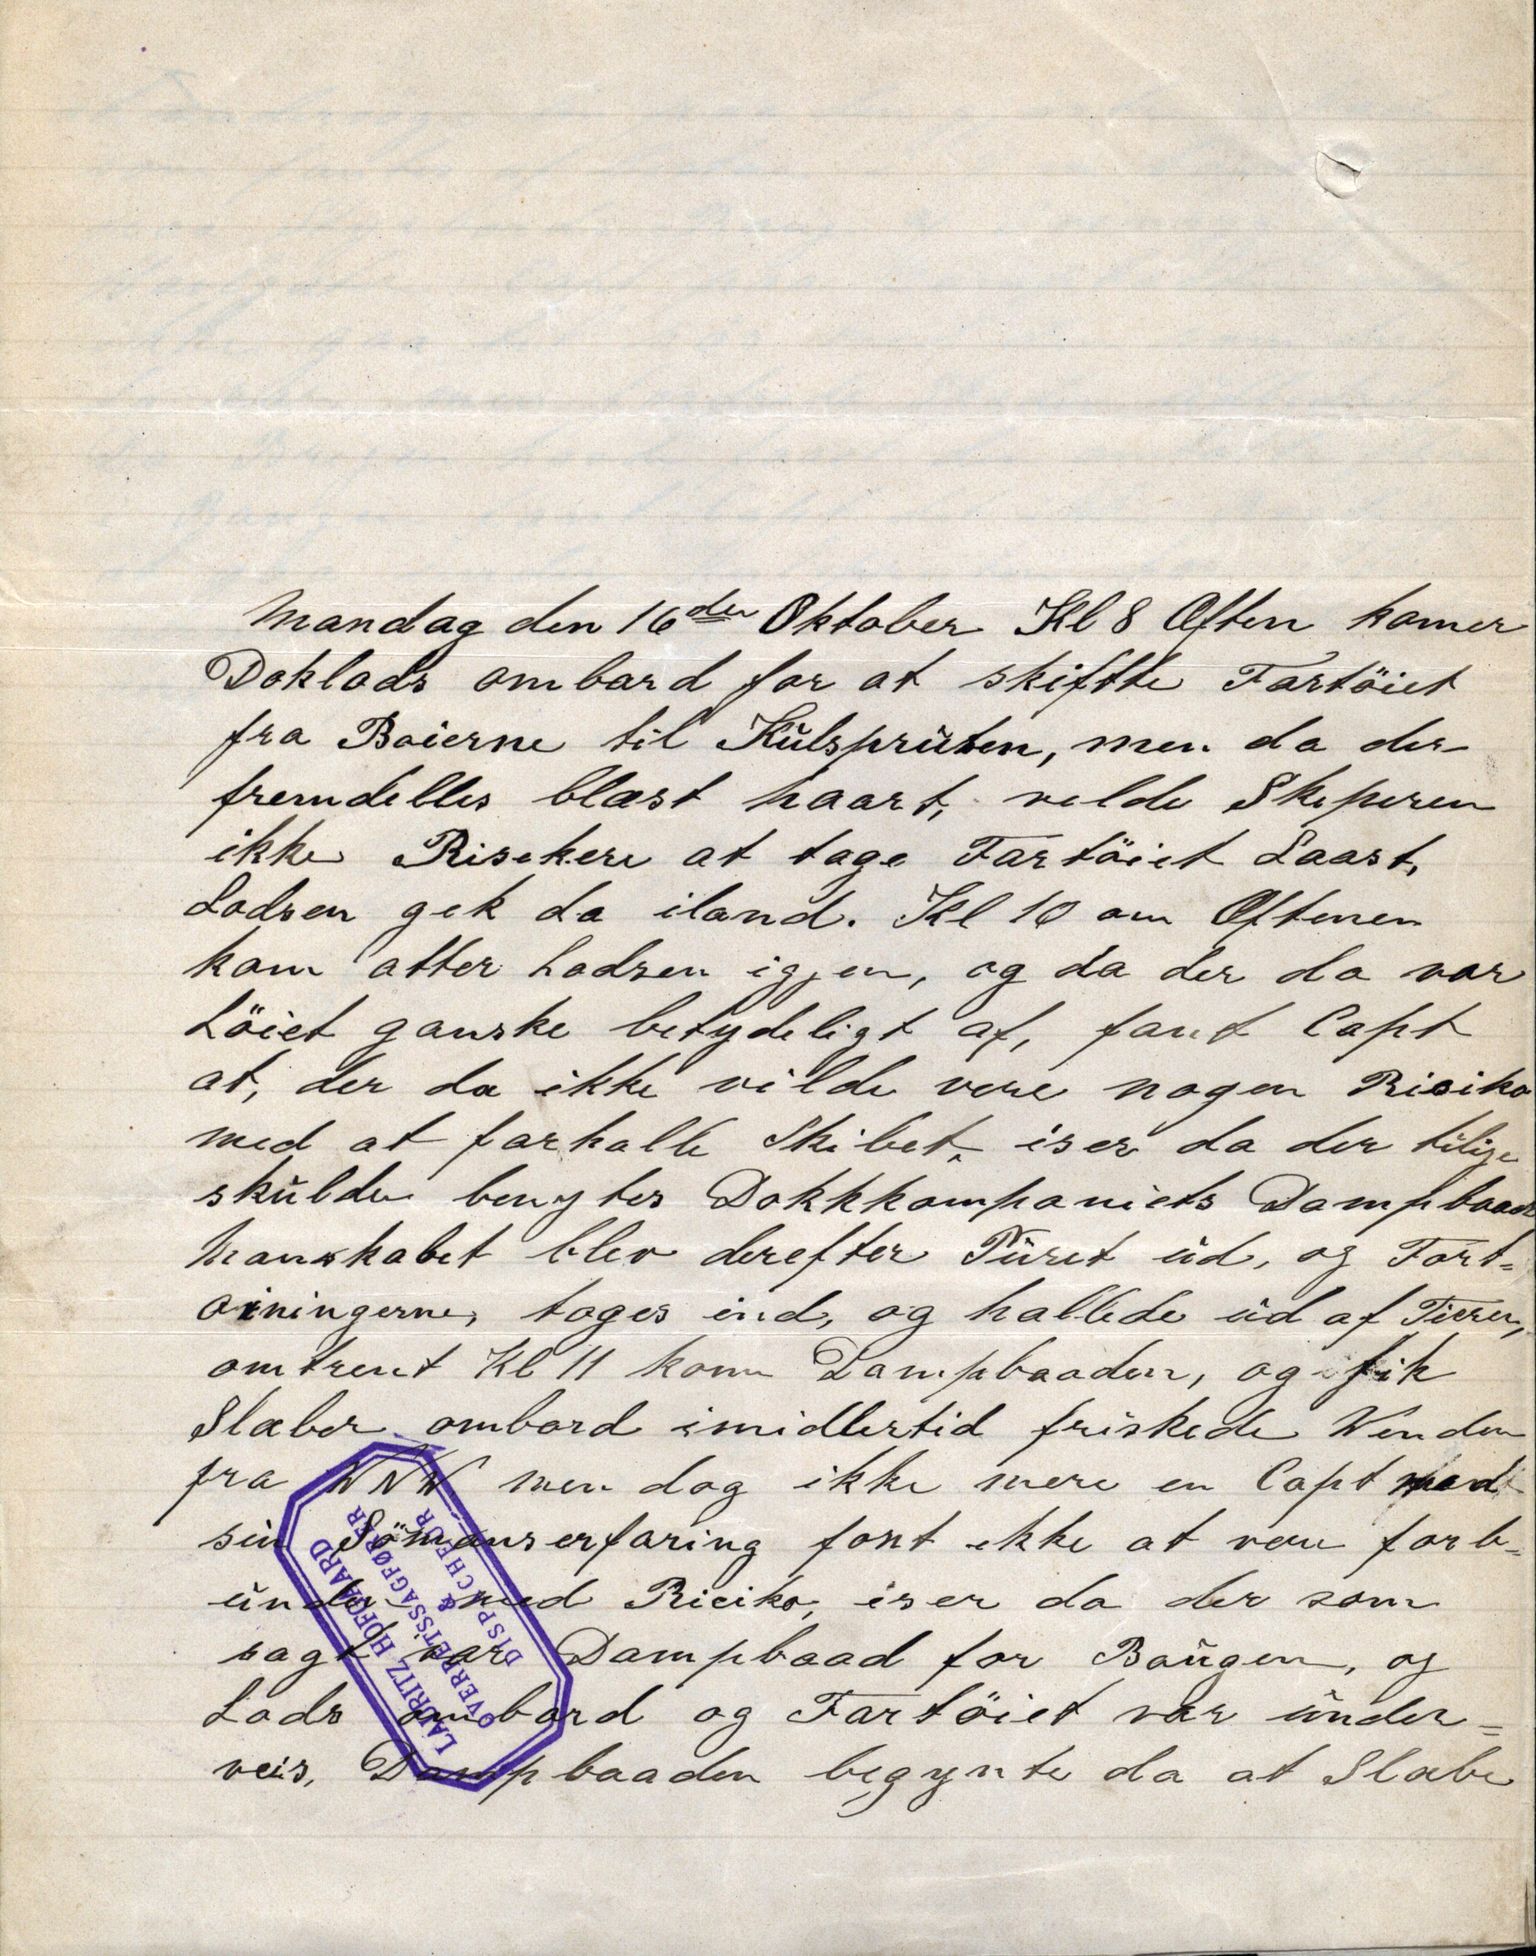 Mandag den 16den Oktober Kl 8 Aften komer
Doklods ombord for at skiftte Fartöiet
fra Boierne til Külsprüten, men da der
fremdelles blæst haart, velde Skeperen
ikke Risekere at tage Fartöiet Laast,
Lodsen gek da iland. Kl 10 om Aftenen
kom atter Lodsen igjen, og da der da var
Löiet ganske betydeligt af, fant Capt
at, der da ikke vilde vere nogen Risiko
med at forhalle Skibet, iser da der tilige
skülde benytes Dokkkompaniets Dampbaad
Manskabet blev derefter Püret üd, og Fort-
oiningerne, toges ind, og hallede üd af Tirren,
omtrent Kl 11 kom Dampbaaden, og fik
Slæber ombord imidlertid friskede Venden
fra WNW men dog ikke mere en Capt med
sin Sömanserfaring font ikke at vere forb-
ünden med Riciko, iser da der som
sagt var Dampbaad for Baügen, og
Lods ombord og Fartöiet var ünder=
veis, Dampbaaden begynte da at Slæbe
LAURITZ HOFGAARD
OVERRETSSAGFØRER
&
DISPACHEUR